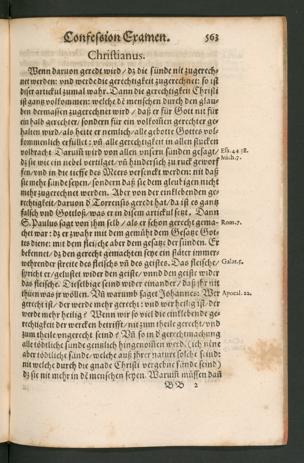 Confession Examen. 563
Christianus.
Wenn daruon geredt wird / dz die sünde nit zugerech-
net werden: vnd werde die gerechtigkeit zugerechnet: so ist
diser artickel zumal wahr. Dann die gerechtigkeit Christi
ist gantz volkommen: welche dē menschen durch den glau-
ben dermassen zugerechnet wird / daß er für Gott nit für
ein halb gerechter / sondern für ein volkom̄en gerechter ge
halten wird / als hette er nemlich / alle gebotte Gottes vol-
kommenlich erfüllet: vñ alle gerechtigkeit in allen stucken
volbracht. Darum̄ wird von allen vnsern sünden gesagt /
dz sie wie ein nebel vertilget / vñ hindersich zu ruck geworf
fen / vnd in die tieffe des Meers versenckt werden: nit daß
sie mehr sünde seyen / sondern daß sie dem gleubigen nicht
mehr zugerechnet werden. Aber von der einklebenden ge-
rechtigkeit / daruon d' Torrensis geredt hat / da ist es gantz
falsch vnd Gottloß / was er in disem artickel setzt. Dann
S. Paulus sagt von ihm selb / als er schon gerecht gema-
chet war: dz er zwahr mit dem gemüht dem Gesatze Got-
tes diene: mit dem fleische aber dem gesatz der sünden. Er
bekennet / dz den gerecht gemachten seye ein stäter immer-
wehrender streite des fleischs vñ des geistes. Das fleische /
spricht er / gelustet wider den geiste / vnnd den geist wider
das fleische. Dieselbige seind wider einander / daß ihr nit
thüen was jr wöllen. Vñ warumb saget Johannes: Wer
gerecht ist / der werde mehr gerecht: vnd wer heilig ist / der
werde mehr heilig? Wenn wir so viel die einklebende ge-
rechtigkeit der wercken betrifft / nit zum theile gerecht / vnd
zum theile vngerecht seind? Vñ so in d' gerechtmachung
alle tödtliche sünde genslich hingenom̄en werd. (ich nēne
aber tödtliche sünde / welche auß jhrer nature solche seind:
nit welche durch die gnade Christi vergebne sünde seind)
dz sie nit mehr in dē menschen seyen. Warum̄ müssen dañ
Esa. 44. 38.
Mich. 7.
Rom. 7.
Galat. 5.
Apocal. 22.
BB 2